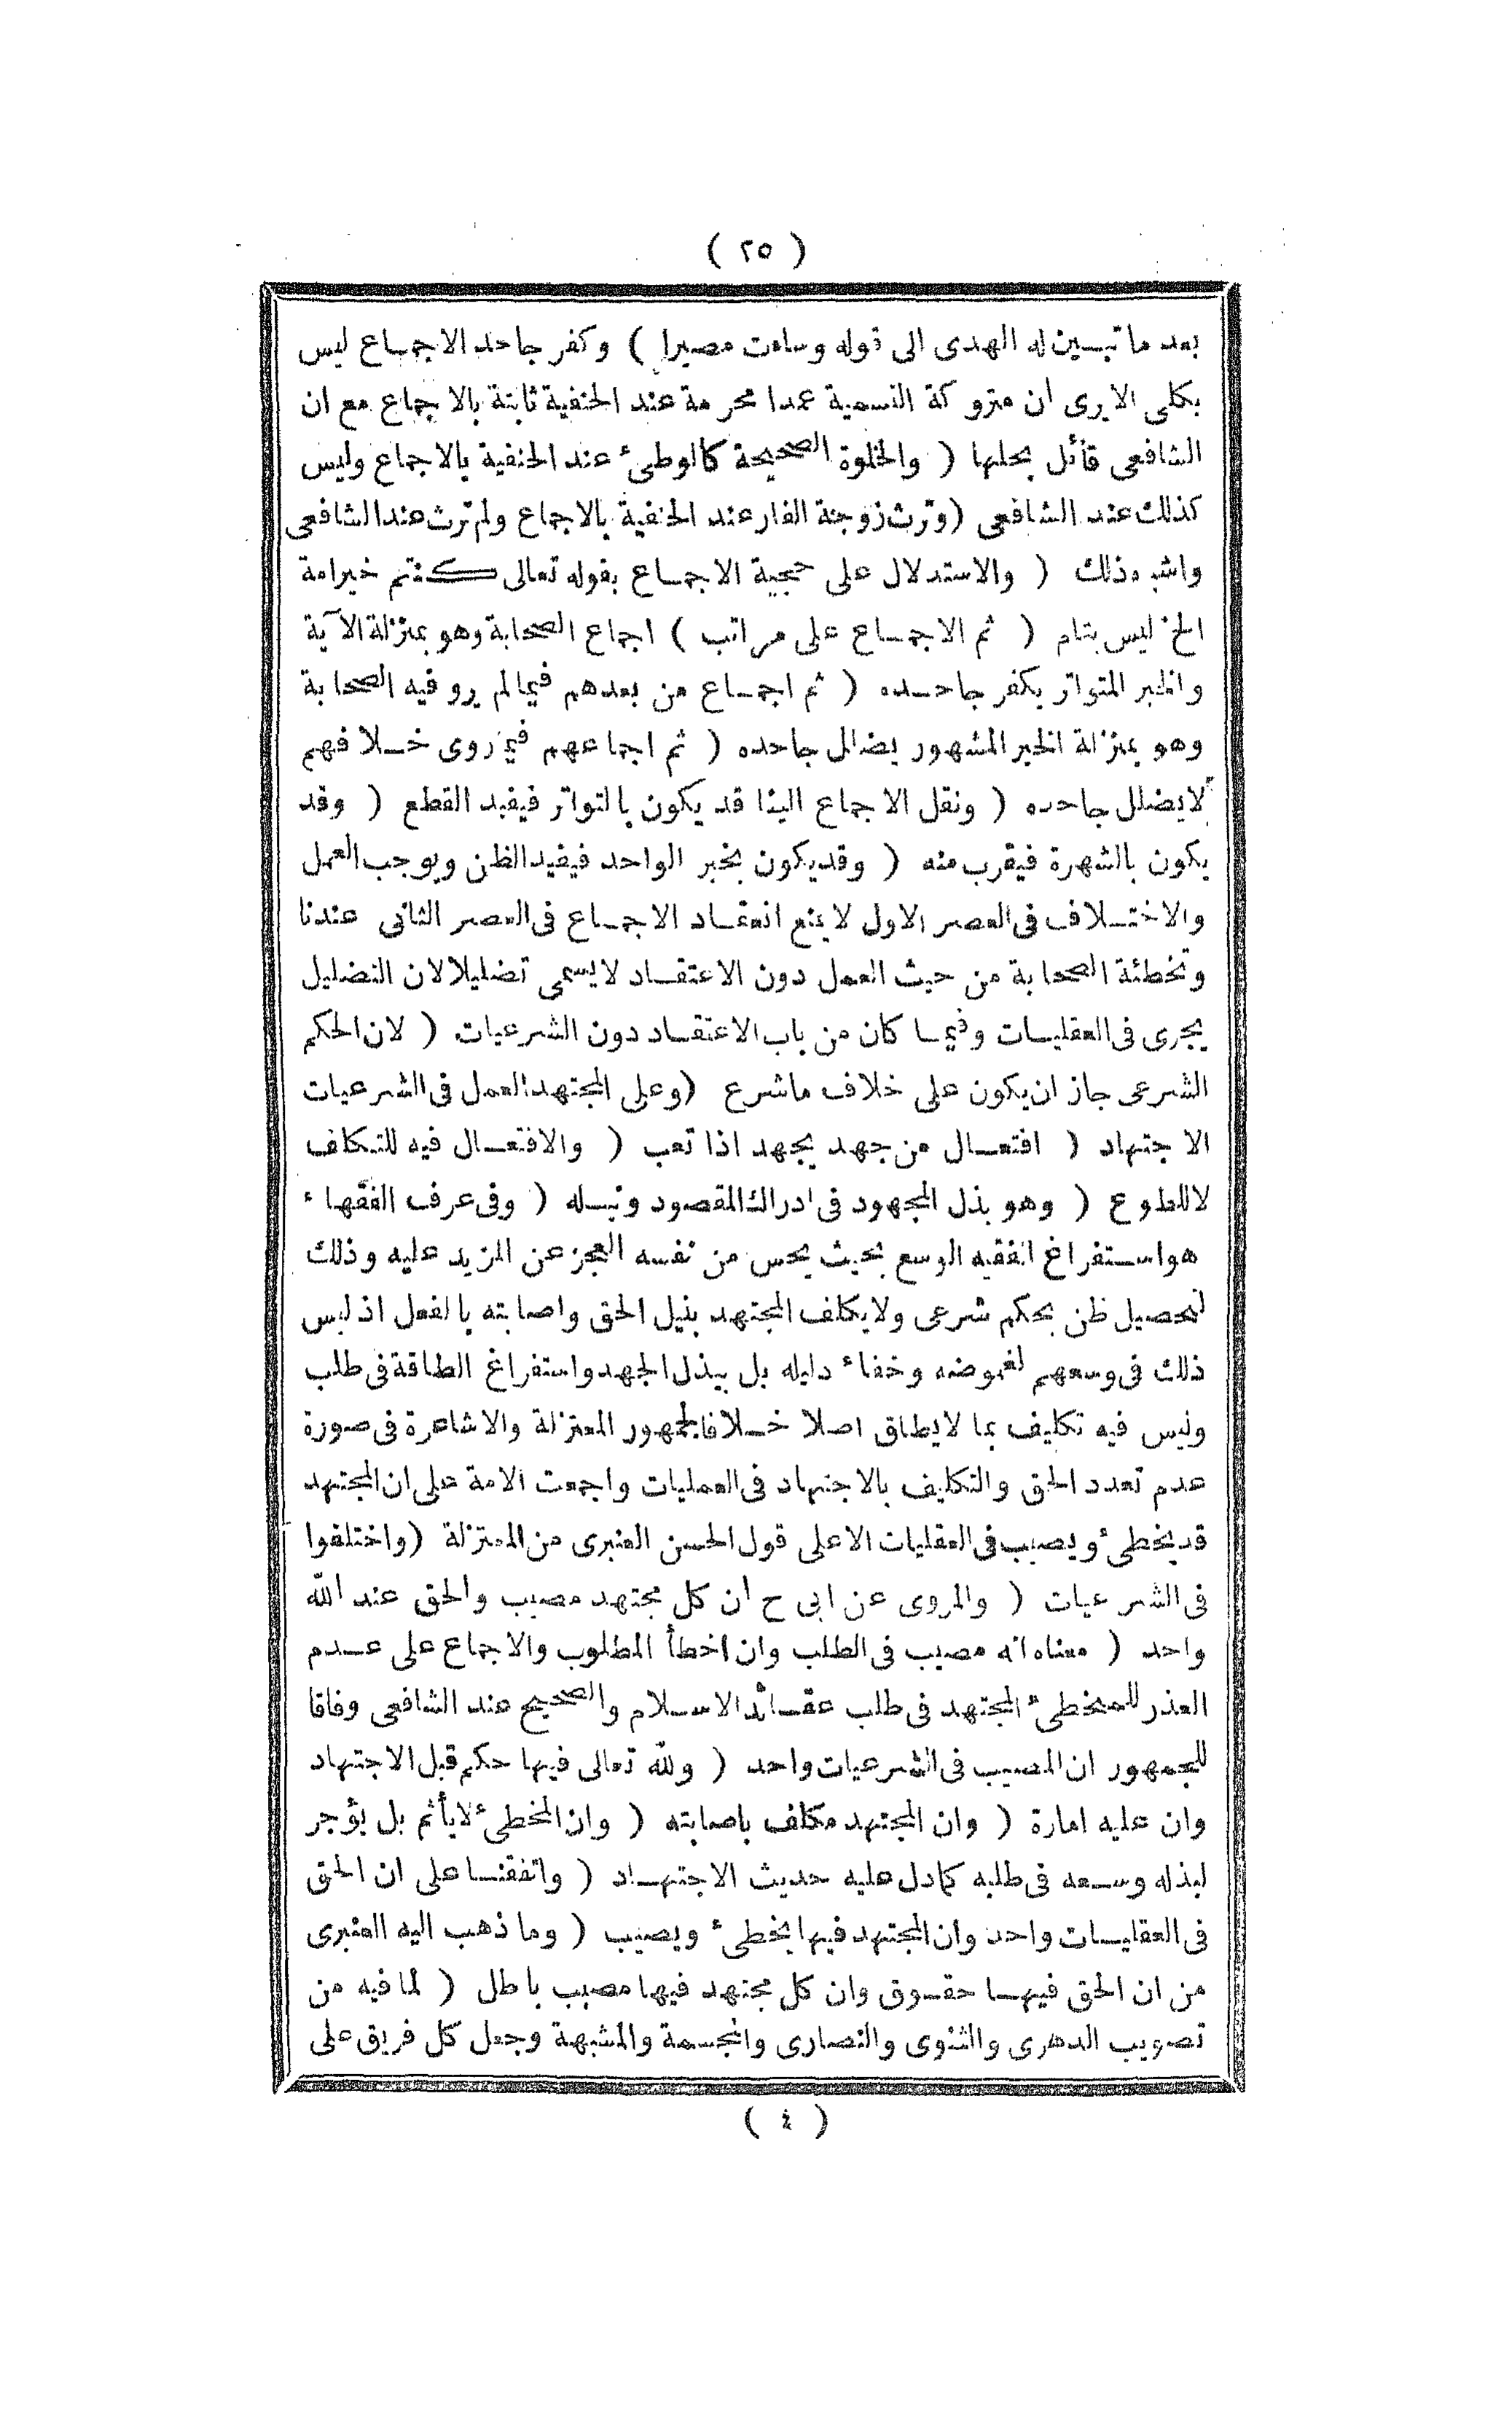 ( ٢٥ )
بعد ما تبين له الهدى الى قوله وساءت مصيرا ) وكفر جاحد الاجماع ليس
بكلى الا يرى ان متروكة التسمية عمدا محرمة عند الحنفية ثابتة بالاجماع مع ان
الشافعى قائل بحلها ( والخلوة الصحيحة كالوطئ عند الحنفية بالاجماع وليس
كذلك عند الشافعى ( وترث زوجة الفار عند الحنفية بالاجماع ولم ترث عند الشافعى
واشبه ذلك ( والاستدلال على حجية الاجماع بقوله تعالى كنتم خير امة
الخ ليس بتام ( ثم الاجماع على مراتب ) اجماع الصحابة وهو بمنزلة الآية
والخبر المتواتر يكفر جاحده ( ثم اجماع من بعدهم فيما لم يرو فيه الصحابة
وهو بمنزلة الخبر المشهور يضلل جاحده ( ثم اجماعهم فيما روى خلافهم
لا يضلل جاحده ( ونقل الاجماع الينا قد يكون بالتواتر فيفيد القطع ( وقد
يكون بالشهرة فيقرب منه ( وقد يكون بخبر الواحد فيفيد الظن ويوجب العمل
والاختلاف فى العصر الاول لا يمنع انعقاد الاجماع فى العصر الثانى عندنا
وتخطئة الصحابة من حيث العمل دون الاعتقاد لا يسمى تضليلا لان التضليل
يجرى فى العقليات وفيما كان من باب الاعتقاد دون الشرعيات ( لان الحكم
الشرعى جاز ان يكون على خلاف ما شرع ( وعلى المجتهد العمل فى الشرعيات
الاجتهاد ( افتعال من جهد يجهد اذا تعب ( والافتعال فيه للتكلف
لا للطوع ( وهو بذل المجهود فى ادراك المقصود ونيله ( وفى عرف الفقهاء
هو استفراغ الفقيه الوسع بحيث يحس من نفسه العجز عن المزيد عليه وذلك
لتحصيل ظن بحكم شرعى ولا يكلف المجتهد بنيل الحق واصابته بالفعل اذ ليس
ذلك فى وسعهم لغموضه وخفاء دليله بل ببذل الجهد واستفراغ الطاقة فى طلب
وليس فيه تكليف بما لا يطاق اصلا خلافا لجمهور المعتزلة والاشاعرة فى صورة
عدم تعدد الحق والتكليف بالاجتهاد فى العمليات واجمعت الامة على ان المجتهد
قد يخطئ ويصيب فى العقليات الا على قول الحسن العنبرى من المعتزلة ( واختلفوا
فى الشرعيات ( والمروى عن ابى ح ان كل مجتهد مصيب والحق عند الله
واحد ( معناه انه مصيب فى الطلب وان اخطأ المطلوب والاجماع على عدم
العذر للمخطئ المجتهد فى طلب عقائد الاسلام والصحيح عند الشافعى وفاقا
للجمهور ان المصيب فى الشرعيات واحد ( ولله تعالى فيها حكم قبل الاجتهاد
وان عليه امارة ( وان المجتهد مكلف باصابته ( وان المخطئ لا يأثم بل يؤجر
لبذله وسعه فى طلبه كما دل عليه حديث الاجتهاد ( واتفقنا على ان الحق
فى العقليات واحد وان المجتهد فيها يخطئ ويصيب ( وما ذهب اليه العنبرى
من ان الحق فيها حقوق وان كل مجتهد فيها مصيب باطل ( لما فيه من
تصويب الدهرى والثنوى والنصارى والمجسمة والمشبهة وجعل كل فريق على
( ٤ )